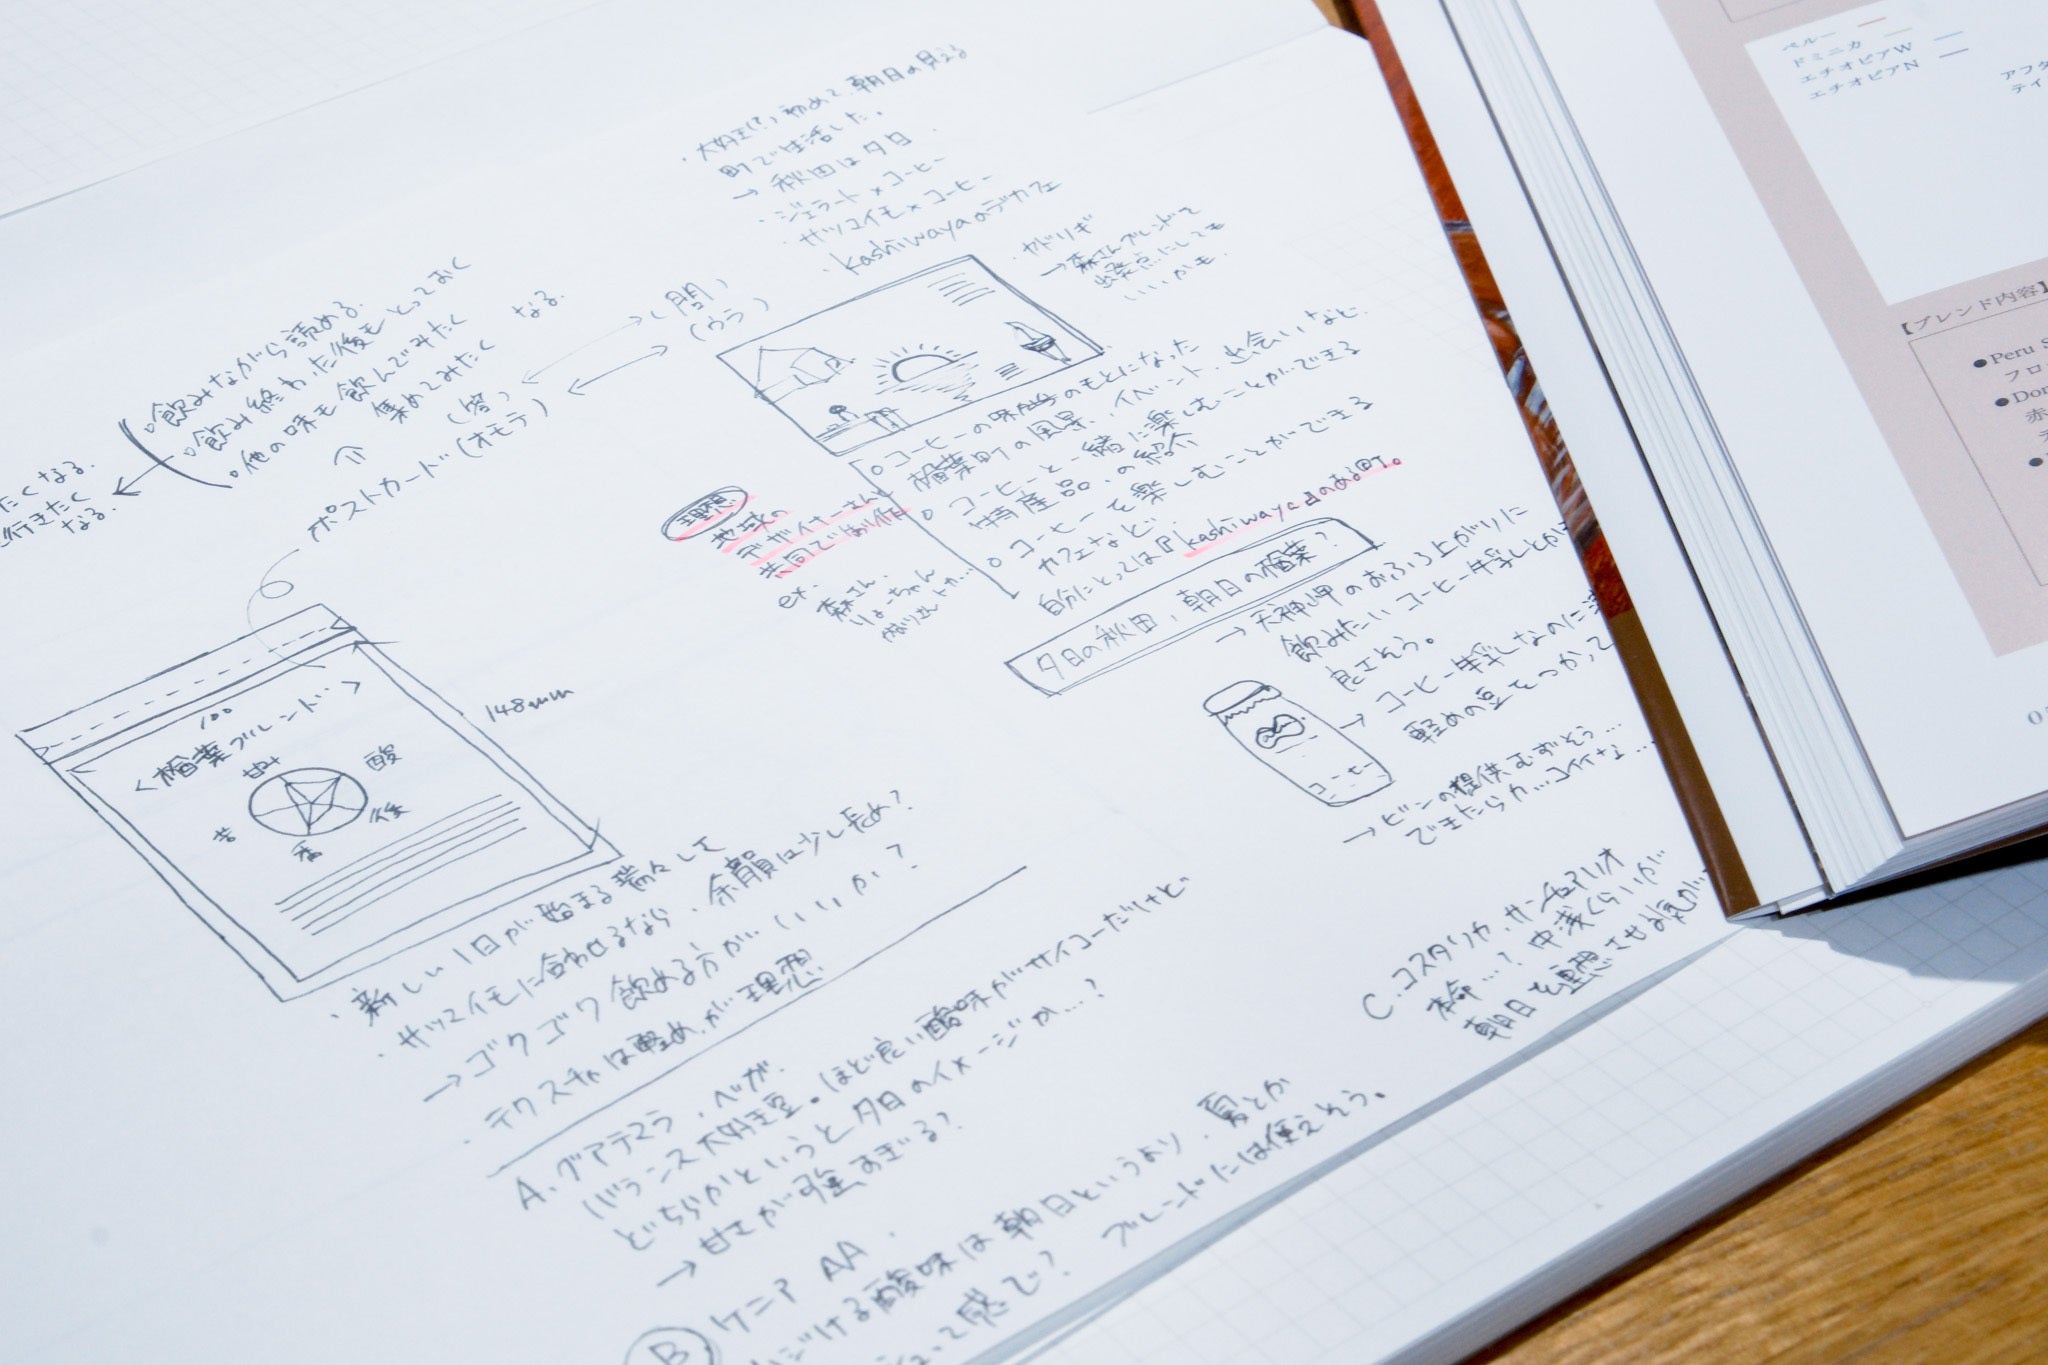 ・大好き(?)初めて、朝日の見える
町で生活した。
→ 秋田は夕日
・ジェラート×コーヒー
・サツマイモ×コーヒー
・kashiwayaのデカフェ
・ヤドリギ
→森さんブレンドを
出発点にしても
いいかも。
(問)
(ウラ)
○飲みながら読める。
○飲み終わった後もとっておく
○他の味も飲んでみたく なる。
集めてみたく
たくなる。
行きたく
なる。
(答)
ポストカード(オモテ)
○コーヒーの味のもとになった
楢葉町の風景、イベント、出会いなど。
○コーヒーと一緒に楽しむことができる
特産品の紹介
○コーヒーを楽しむことができる
カフェなど。
自分にとっては『kashiwaya』のある町。
理想
地域の
デザイナーさんと
共同で制作
ex.
森さん、
りょーちゃん
夕日の秋田、朝日の楢葉?
→ 天神岬のおふろ上がりに
飲みたいコーヒー牛乳とか
良さそう。
→ コーヒー牛乳なのに
軽めの豆をつかって
→ ビンの提供むずそう…
できたらカッコイイな…
コーヒー
148mm
100
<楢葉ブレンド>
甘 酸
苦 後
香
・新しい1日が始まる瑞々しさ
・サツマイモに合わせるなら、余韻は少し長め?
→ ゴクゴク飲める方が…いいか?
・テクスチャは軽め、が理想
A. グアテマラ、ベガ。
バランス大好き豆。ほど良い酸味がサイコーだけど、
どちらかというと夕日のイメージか…?
→ 甘さが強すぎる?
B ケニア AA.
はじける酸味は朝日というより、夏とか
って感じ? ブレンドには使えそう。
C. コスタリカ、サンタマリア
本命…? 中浅くらいが
朝日を連想させる気が
ペルー
ドミニカ
エチオピアW
エチオピアN
アフタ
テイ
【ブレンド内容】
●Peru S
フロ
●Dom
赤